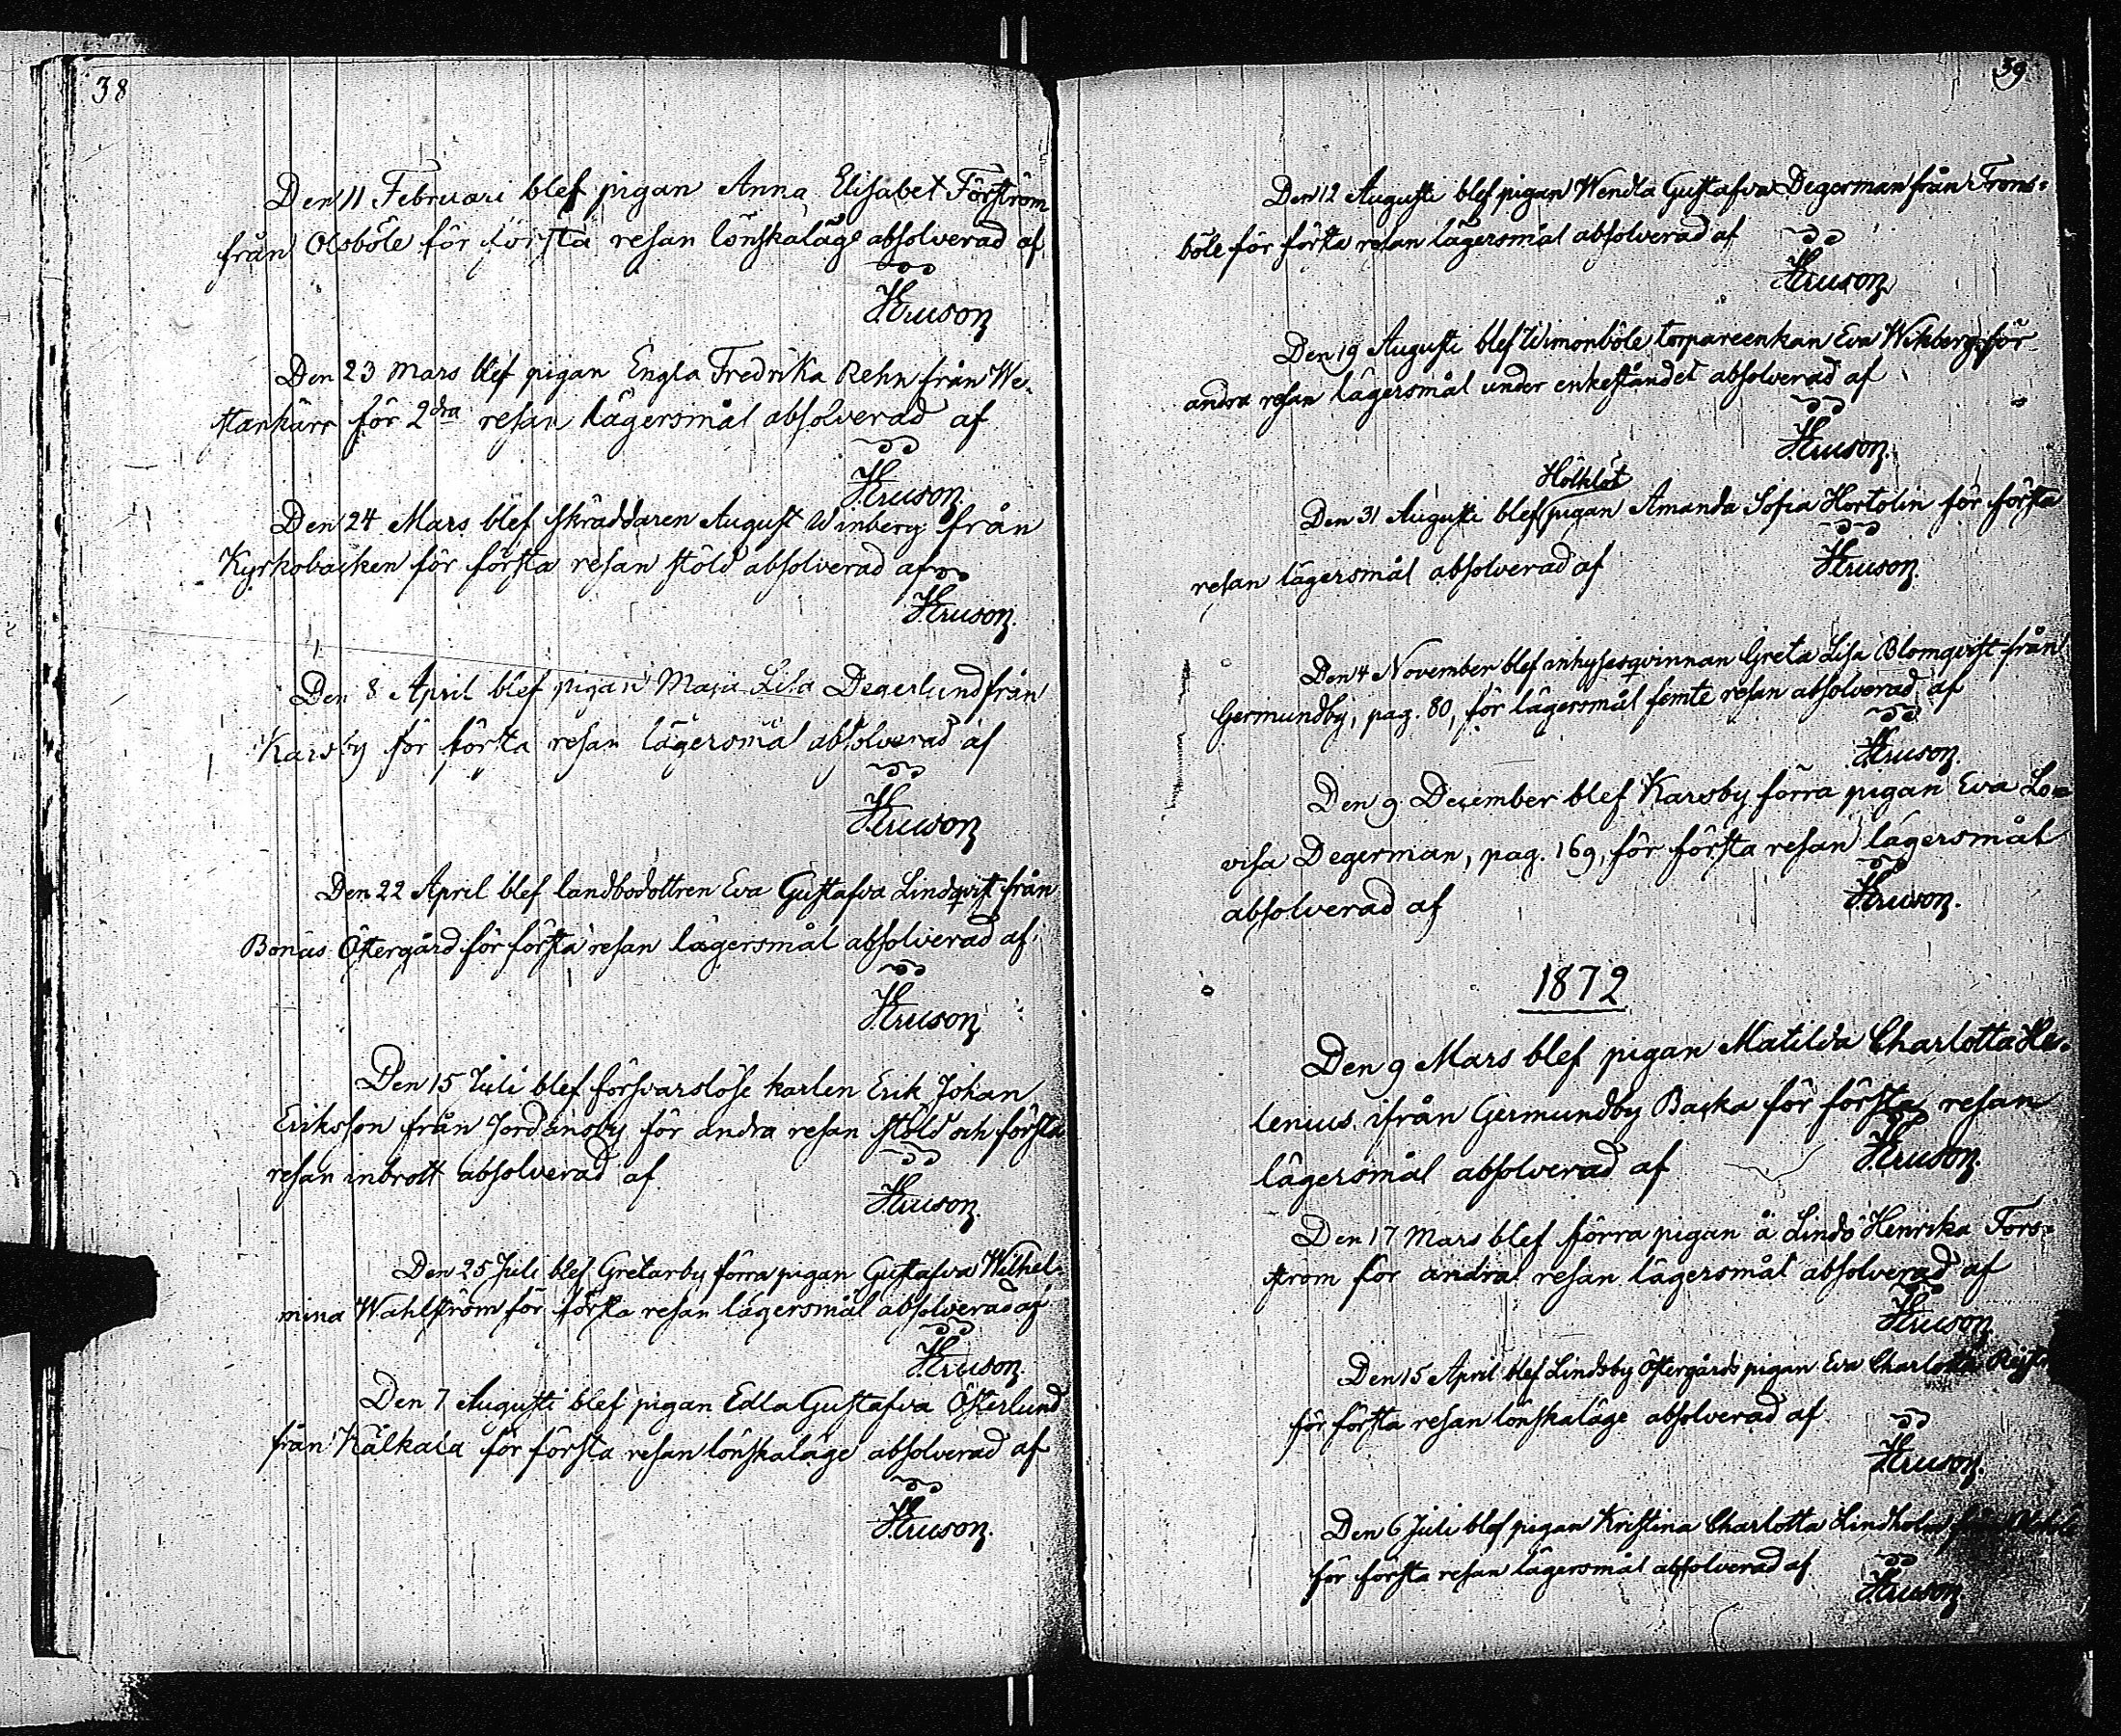 38
Den 11 Februari blef pigan Anna Elisabet Förström
från Olsböle för första resan lönskaläge absolverad af
HKruson
Den 23 Mars blef pigan Engla Fredrika Rehn från We-
stankärr för 2dra resan lägersmål absolverad af
HKruson.
Den 24 Mars blef skräddaren August Winberg från
Kyrkobacken för första resan stöld absolverad af
HKruson.
Den 8 April blef pigan Maja Lisa Degerlund från
Karsby för första resan lägersmål absolverad af
HKruson
Den 22 April blef landbodottren Eva Gustafva Lindqvist från
Bonäs Östergård för första resan lägersmål absolverad af
HKruson
Den 15 Juli blef försvarslöse karlen Erik Johan
Eriksson från Jordansby för andra resan stöld och första
resan inbrott absolverad af
HKruson.
Den 25 Juli blef Gretarby förra pigan Gustafva Wilhel-
mina Wahlström för första resan lägersmål absolverad af
HKruson.
Den 7 Augusti blef pigan Edla Gustafva Österlund
från Kälkala för första resan lönskaläge absolverad af
HKruson.
39
Den 12 Augusti blef pigan Wendla Gustafva Degerman från Trons-
böle för första resan lägersmål absolverad af
HKruson
Den 19 Augusti blef Wimonböle torpareenkan Eva Wikberg för
andra resan lägersmål under enkeståndet absolverad af
HKruson.
Hölklöt
Den 31 Augusti blef pigan Amanda Sofia Hortolin för första
resan lägersmål absolverad af
HKruson
Den 4 November blef inhysesqvinnan Greta Lisa Blomqvist från
Germundby, pag. 80, för lägersmål femte resan absolverad af
HKruson.
Den 9 December blef Karsby förra pigan Eva Lo-
visa Degerman, pag. 169, för första resan lägersmål
absolverad af
HKruson.
1872
Den 9 Mars blef pigan Matilda Charlotta He-
lenius ifrån Germundby Backa för första resan
lägersmål absolverad af
HKruson.
Den 17 Mars blef förra pigan å Lindö Henrika Fors-
ström för andra resan lägersmål absolverad af
HKruson
Den 15 April blef Lindsby Östergårds pigan Eva Charlotta
för första resan lönskaläge absolverad af
HKruson.
Den 6 Juli blef pigan Kristina Charlotta Lindholm från
för första resan lägersmål absolverad af
HKruson.